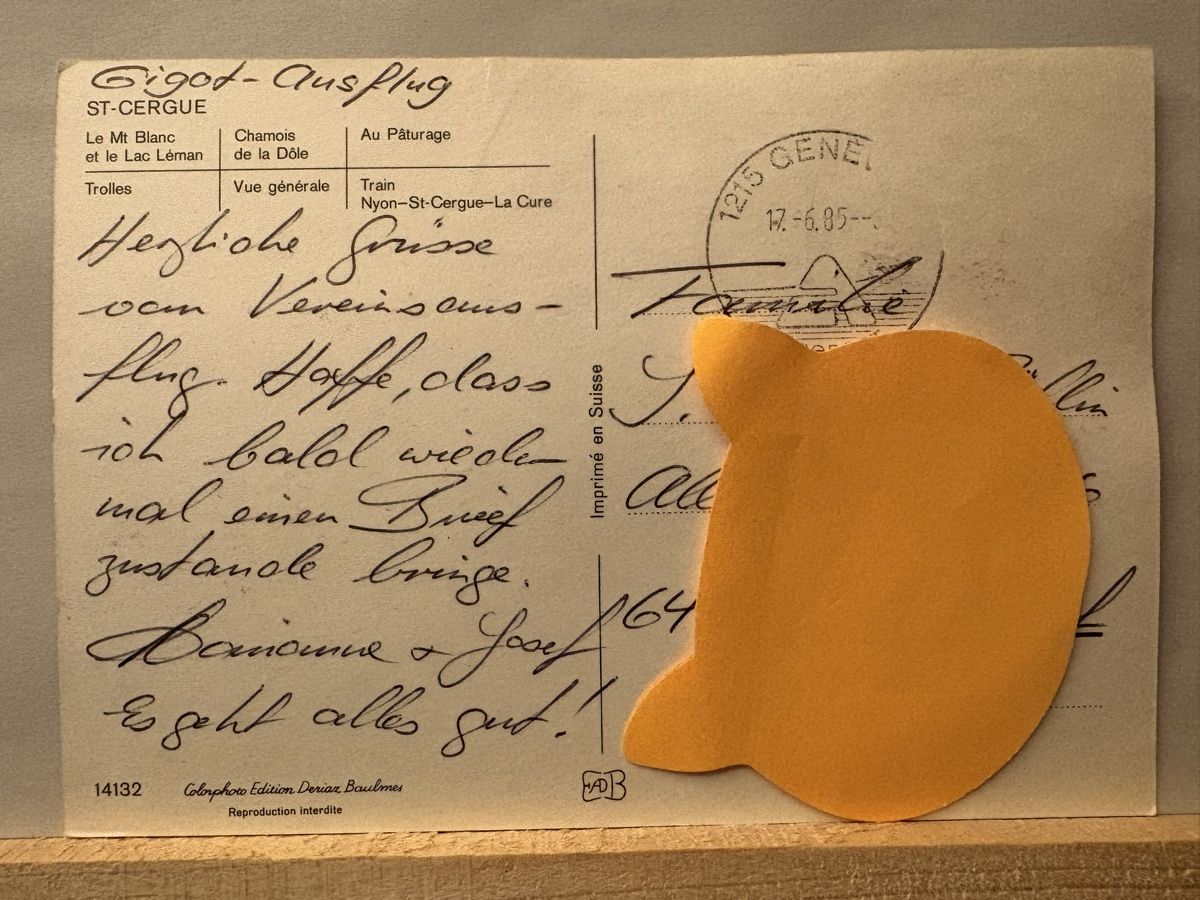 Gigot-Ausflug
ST-CERGUE
Le Mt Blanc
et le Lac Léman
Chamois
de la Dôle
Au Pâturage
Trolles
Vue générale
Train
Nyon–St-Cergue–La Cure
Herzliche Grüsse
vom Vereinsaus-
flug. Hoffe, dass
ich bald wieder
mal einen Brief
zustande bringe.
Marianne + Josef
Es geht alles gut!
14132
Colorphoto Edition Deriaz Baulmes
Reproduction interdite
Imprimé en Suisse
EADB
1215 GENE
17.-6.85--
Familie
J.
64